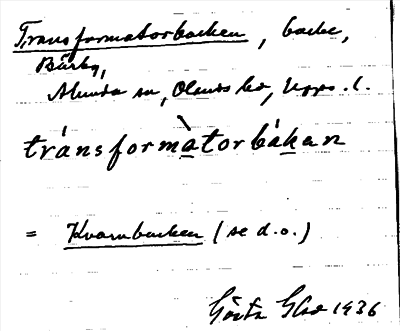 Transformatorbacken, backe,
Bärby,
Alunda sn, Olands hd, Upps. l.
tránsformàtorbákan
= Kvarnbacken (se d.o.)
Gösta 1936